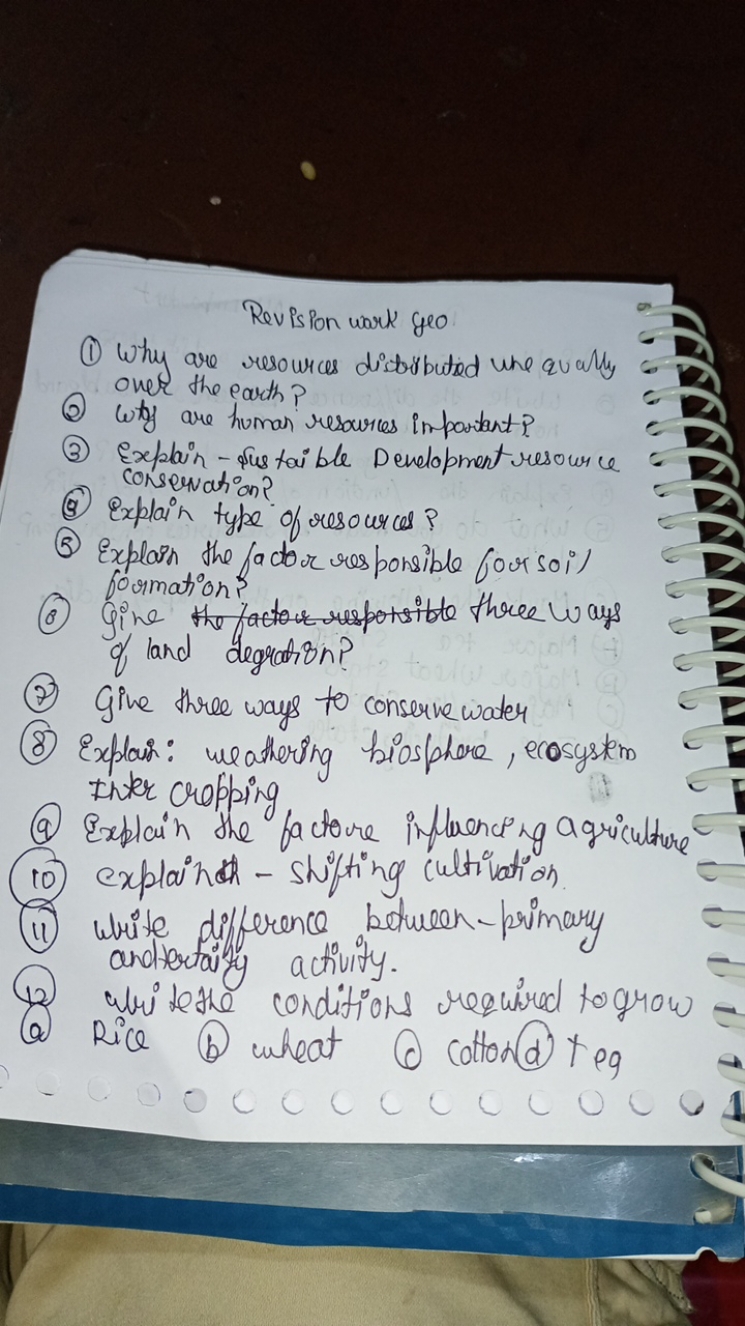 Revision work Geo
① Why are resources distributed unequally
over the earth?
② Why are human resources important?
③ Explain - sustaible Development resource
conservation?
④ Explain type of resources?
⑤ Explain the factor responsible for soil
formation?
⑥ Give the factor responsible three ways
of land degration?
⑦ Give three ways to conserve water
⑧ Explain: weathering biosphere, ecosystem
Inter cropping
⑨ Explain the factore influencing agriculture
⑩ explain - shifting cultivation.
⑪ write difference between - primary
and activity.
⑫ write the conditions required to grow
ⓐ Rice ⓑ wheat ⓒ cotton ⓓ Tea